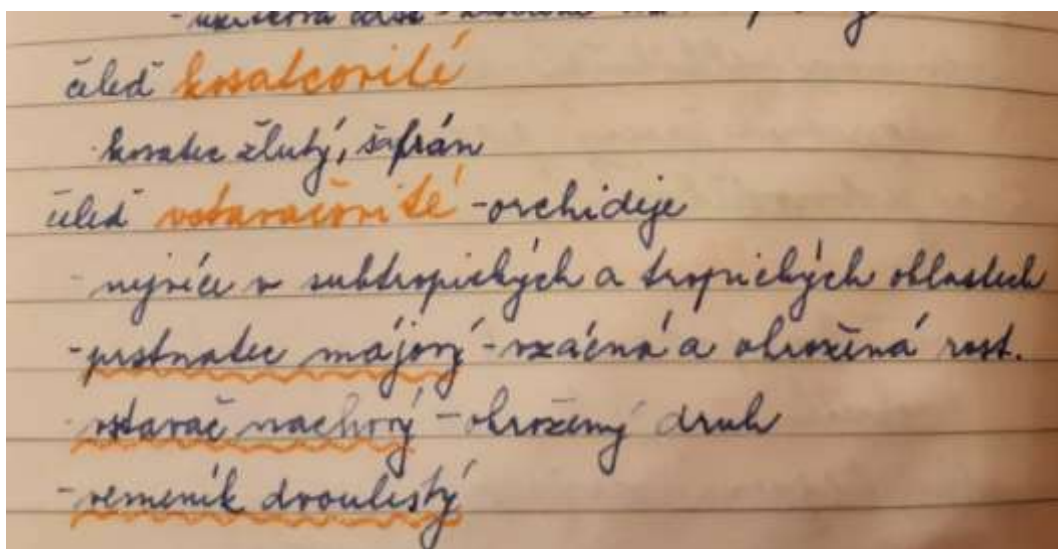 čeleď kosatcovité
kosatec žlutý, šafrán
čeleď vstavačovité - orchideje
- nejvíce v subtropických a tropických oblastech
- prstnatec májový - vzácná a ohrožená rost.
- vstavač nachový - ohrožený druh
- vemeník dvoulistý